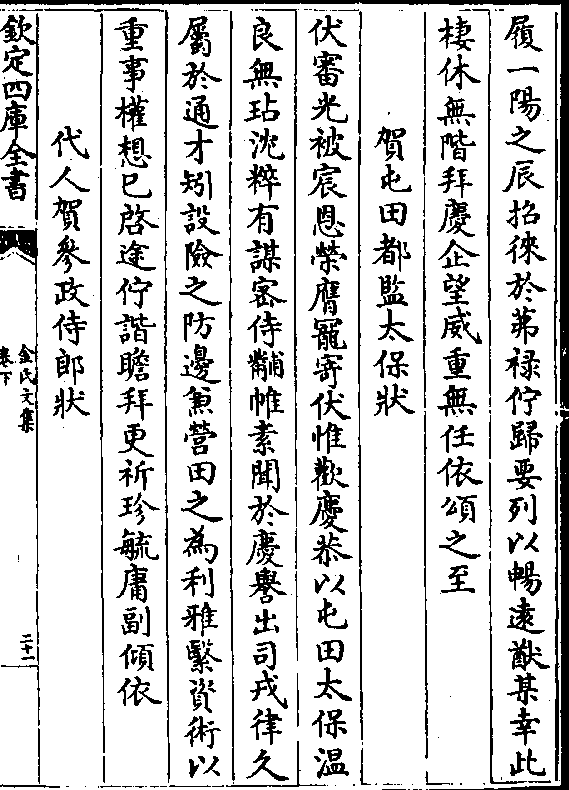 履一陽之辰招徠於茀禄佇歸要列以暢逺猷某幸此
棲休無階拜慶企望威重無任依頌之至
賀屯田都監太保狀
伏審光被宸恩榮膺寵寄伏惟歡慶恭以屯田太保温
良無玷沈粹有謀密侍黼帷素聞於慶譽出司戎律久
屬於通才矧設險之防邊兼營田之為利雅繄資術以
重事權想已啓途佇諧瞻拜更祈珍毓庸副傾依
代人賀參政侍郎狀
欽定四庫全書
金氏文集
卷下
二十一